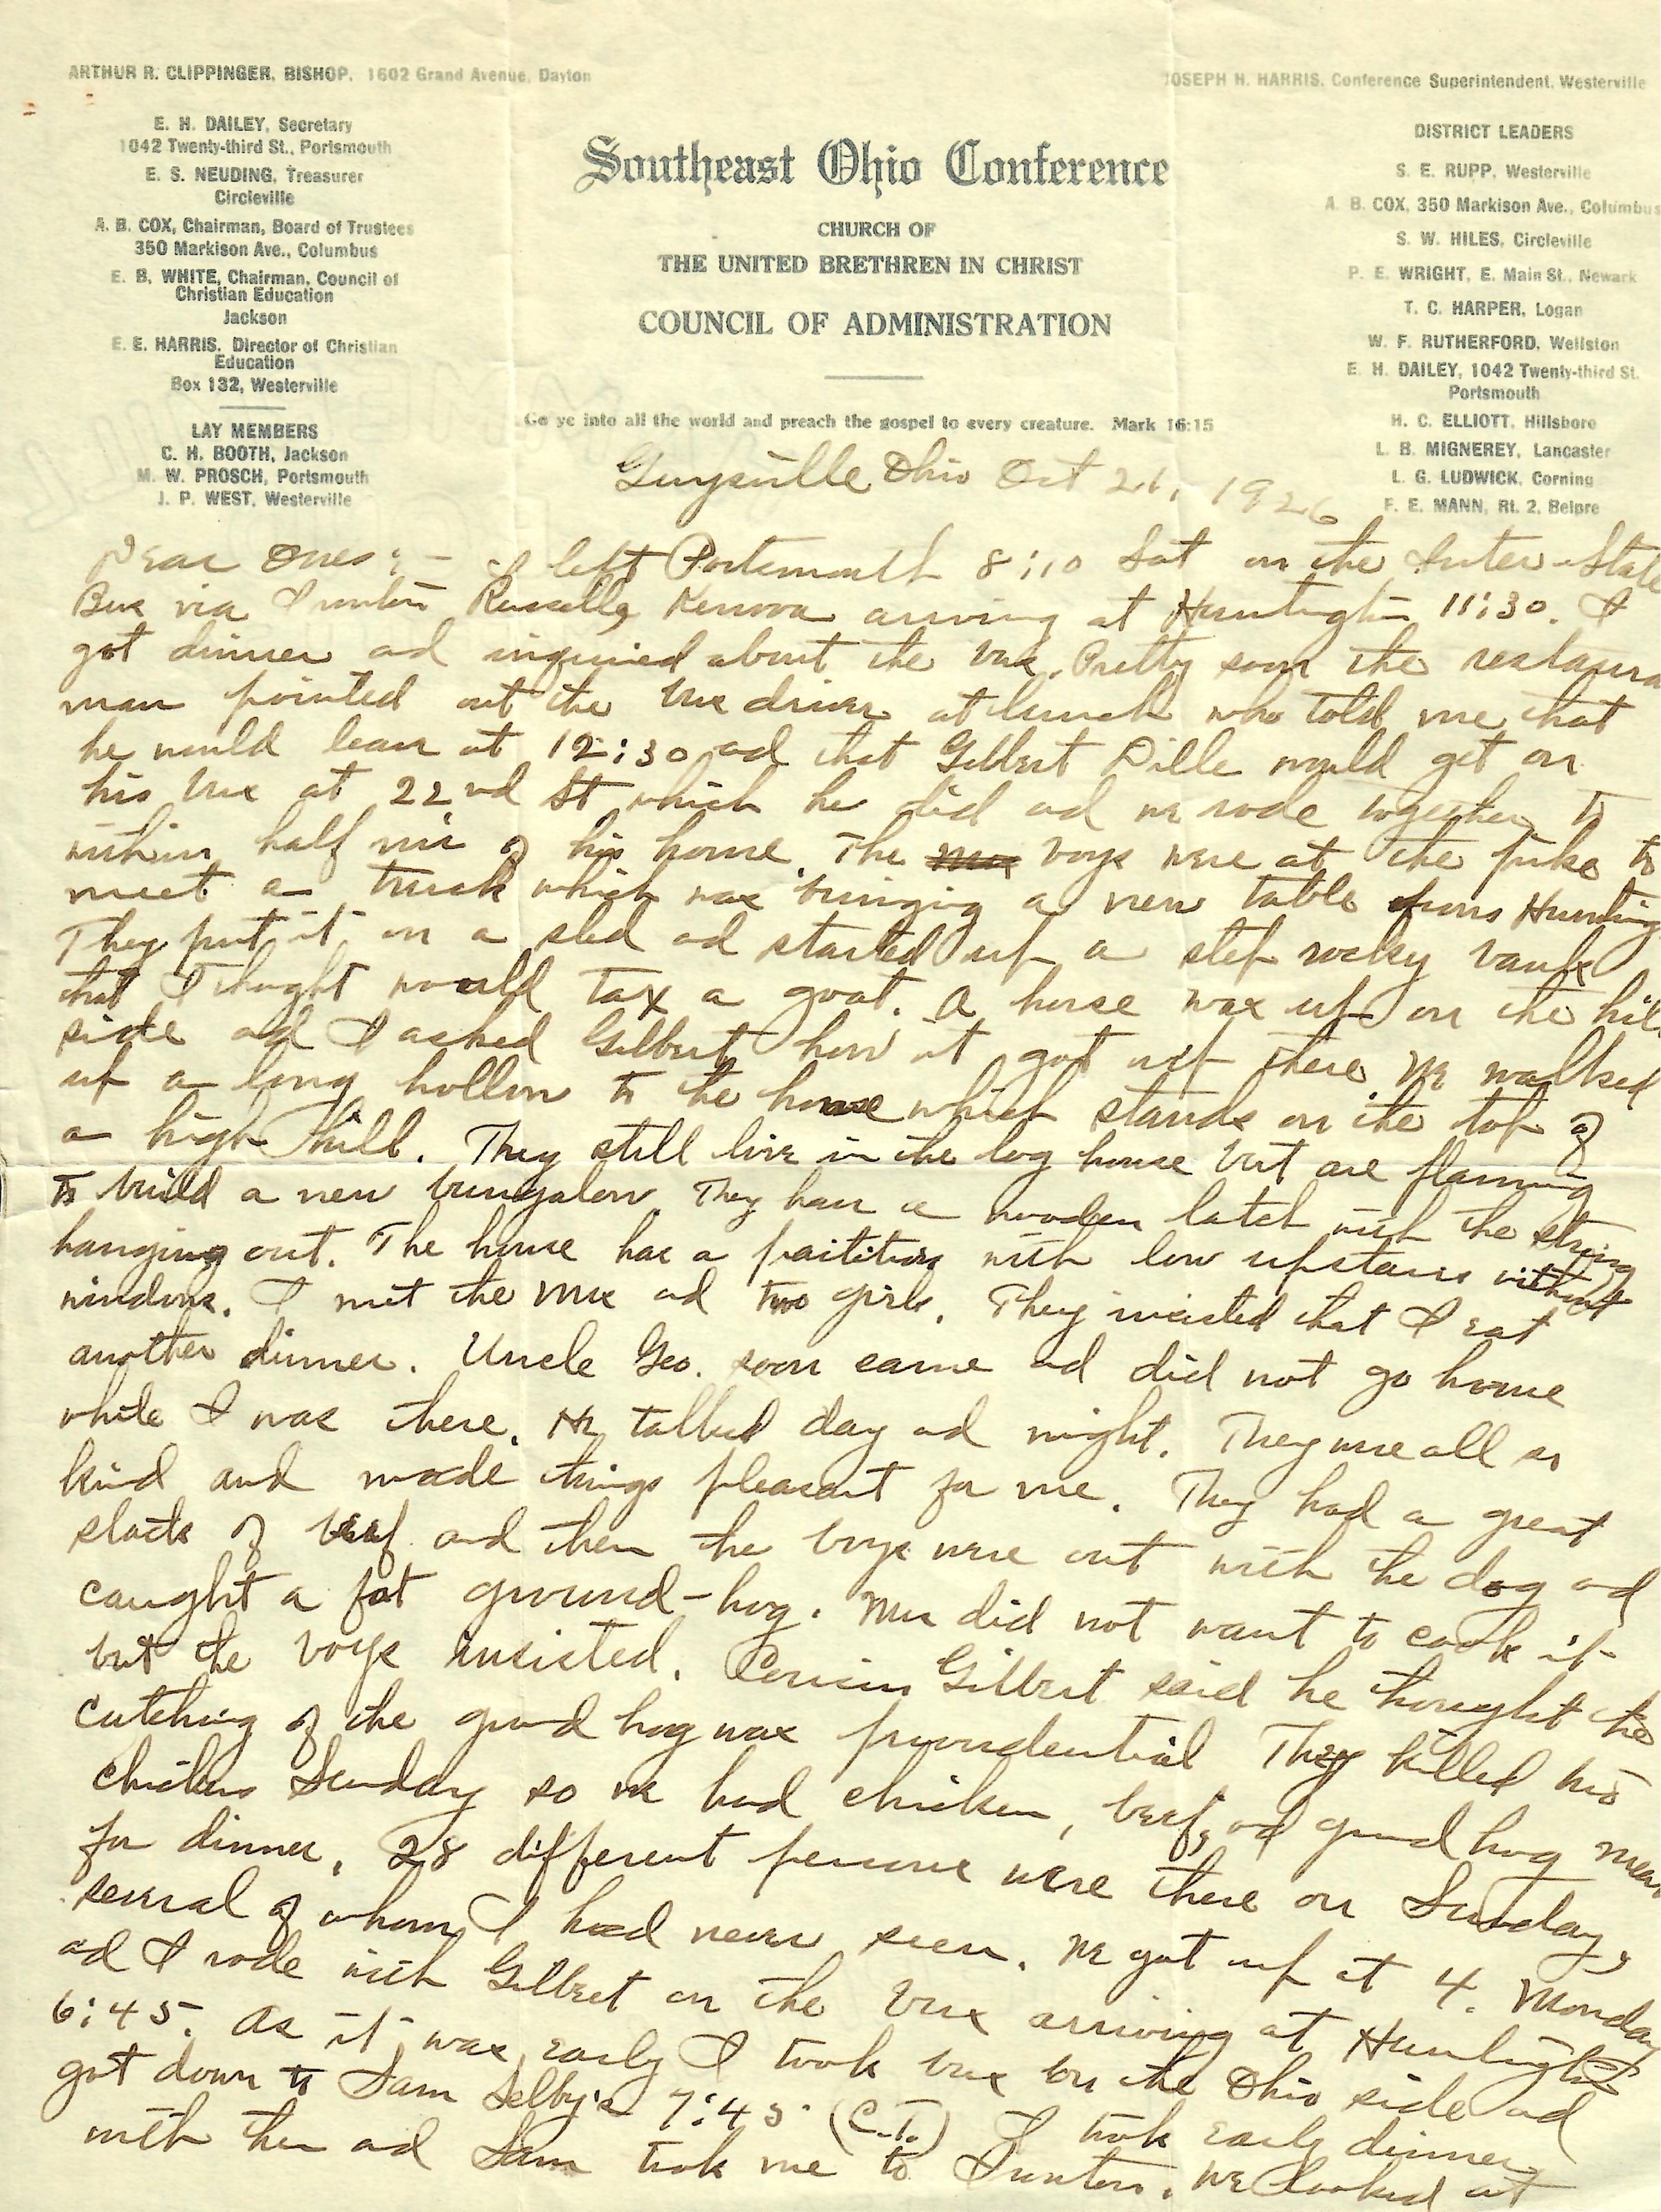 ARTHUR R. CLIPPINGER, BISHOP, 1602 Grand Avenue, Dayton
E. H. DAILEY, Secretary
1042 Twenty-third St., Portsmouth
E. S. NEUDING, Treasurer
Circleville
A. B. COX, Chairman, Board of Trustees
350 Markison Ave., Columbus
E. B. WHITE, Chairman, Council of
Christian Education
Jackson
E. E. HARRIS, Director of Christian
Education
Box 132, Westerville
LAY MEMBERS
C. H. BOOTH, Jackson
M. W. PROSCH, Portsmouth
J. P. WEST, Westerville
Southeast Ohio Conference
CHURCH OF
THE UNITED BRETHREN IN CHRIST
COUNCIL OF ADMINISTRATION
Go ye into all the world and preach the gospel to every creature. Mark 16:15
JOSEPH H. HARRIS, Conference Superintendent, Westerville
DISTRICT LEADERS
S. E. RUPP, Westerville
A. B. COX, 350 Markison Ave., Columbus
S. W. HILES, Circleville
P. E. WRIGHT, E. Main St., Newark
T. C. HARPER, Logan
W. F. RUTHERFORD, Wellston
E. H. DAILEY, 1042 Twenty-third St.
Portsmouth
H. C. ELLIOTT, Hillsboro
L. B. MIGNEREY, Lancaster
L. G. LUDWICK, Corning
F. E. MANN, Rt. 2, Belpre
Guysville Ohio Oct 21, 1926
Dear Ones:- I left Portsmouth 8:10 Sat on the Inter-State
Bus via Ironton Russells, Kenova arriving at Huntington 11:30. I
got dinner ad inquired about the bus. Pretty soon the restaura
man pointed out the bus driver at lunch who told me that
he would leave at 12:30 ad that Gilbert Dille would get on
his bus at 22nd St which he did ad we rode together to
within half mi of his home. The boys were at the pike to
meet a truck which was bringing a new table from Hunting
They put it on a sled ad started up a step rocky bank
that I thought would tax a goat. A horse was up on the hill
side ad I asked Gilbert how it got up there. We walked
up a long hollow to the house which stands on the top of
a high hill. They still live in the log house but are planning
to build a new bungalow. They have a wooden latch with the string
hanging out. The house has a partition with low upstairs without
windows. I met the Mrs ad two girls. They insisted that I eat
another dinner. Uncle Geo. soon came ad did not go home
while I was there. He talked day ad night. They were all so
kind and made things pleasant for me. They had a great
stack of beef and then the boys were out with the dog ad
caught a fat ground-hog. Mrs did not want to cook it
but the boys insisted. Cousin Gilbert said he thought the
catching of the ground hog was providential They killed two
chickens Sunday so we had chicken, beef, ad ground hog meat
for dinner. 28 different persons were there on Sunday,
several of whom I had never seen. We got up at 4. Monday
ad I rode with Gilbert on the bus arriving at Huntington
6:45. As it was early I took bus on the Ohio side ad
got down to Sam Selby's 7:45 (C.T.) I took early dinner
with them ad Sam took me to Ironton. We looked at